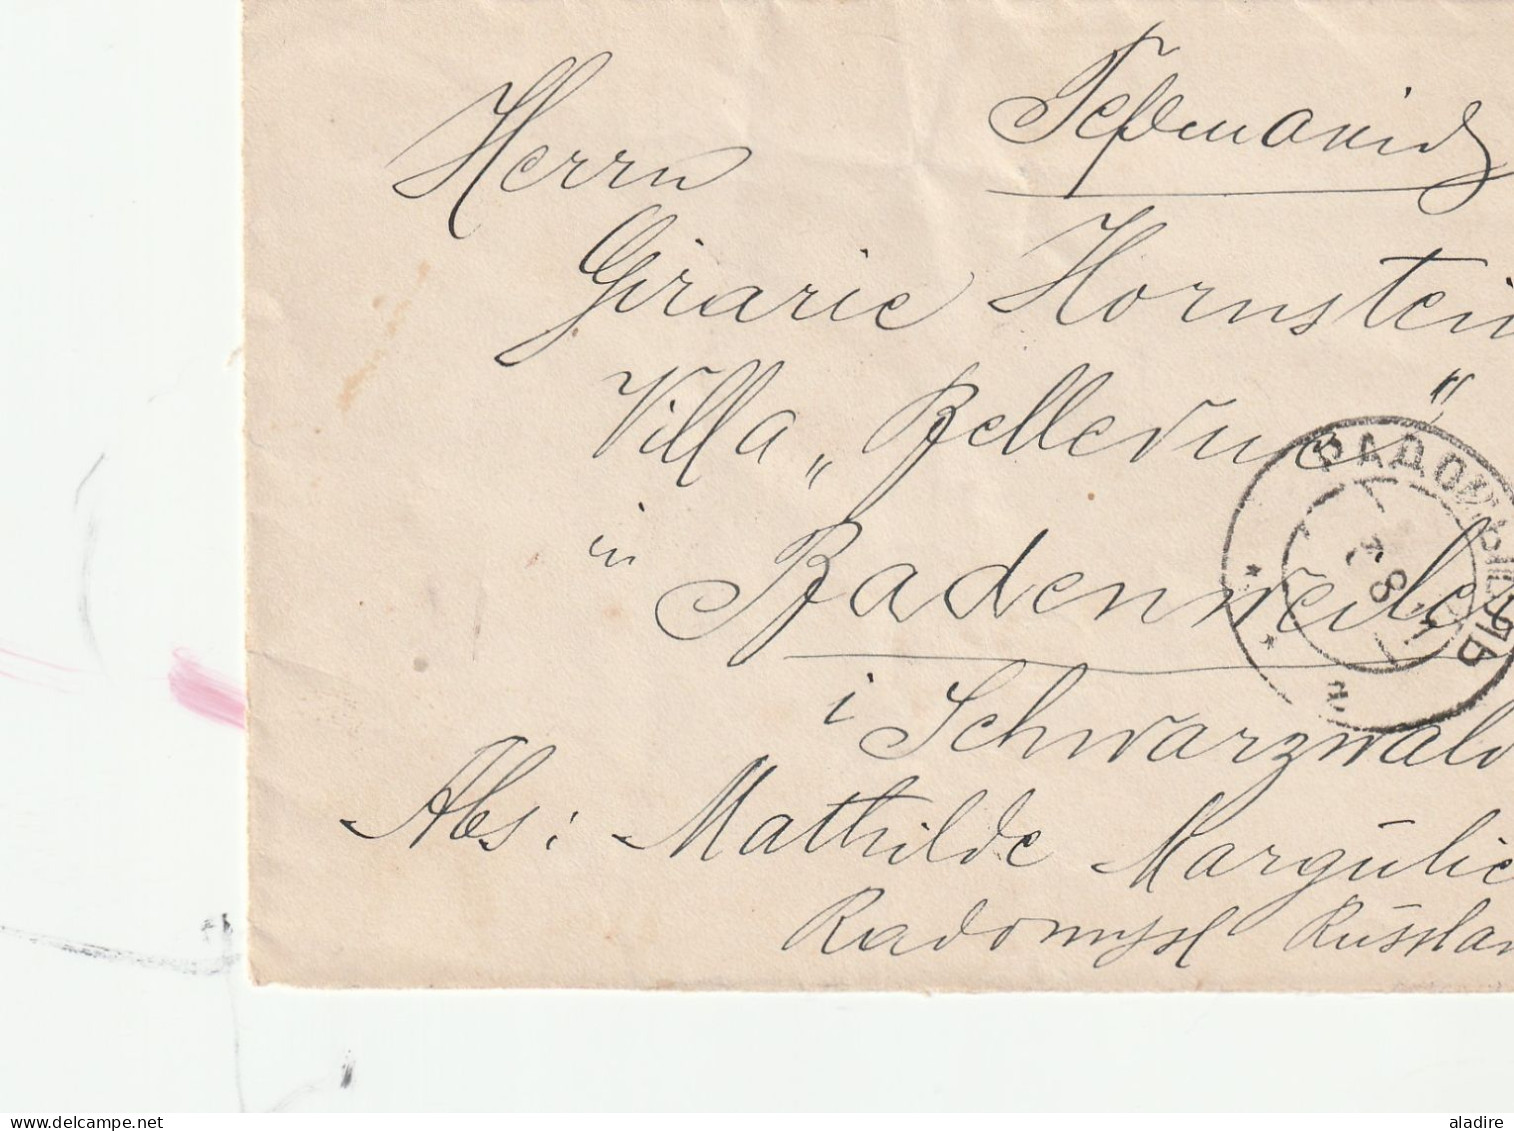 Германія
Herrn
Girarie Hornstein
Villa „Bellevue"
in Badenweile
i Schwarzwald
Abs: Mathilde Margulie
Radomysl Russlan
РАДОМЫСЛЬ
aladire